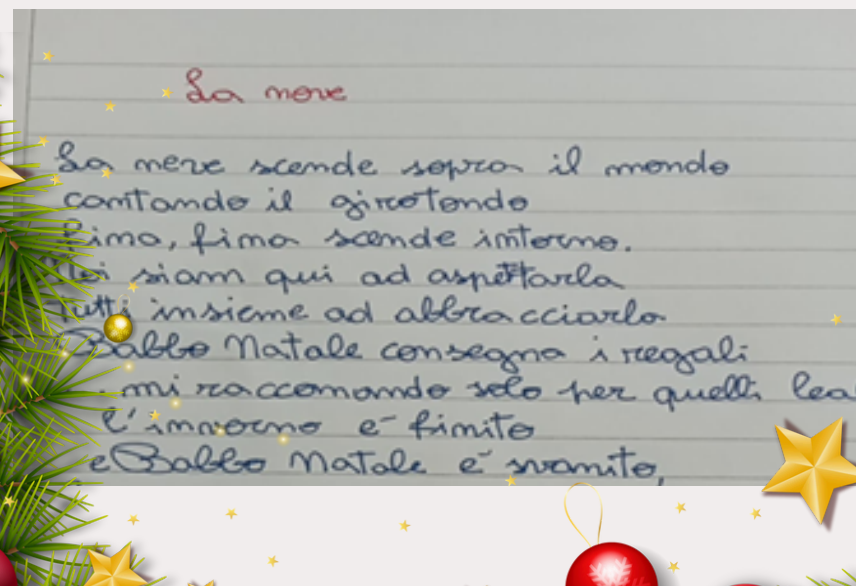 La neve
La neve scende sopra il mondo
cantando il girotondo
fina, fina scende intorno.
Noi siam qui ad aspettarla
tutti insieme ad abbracciarla
Babbo Natale consegna i regali
mi raccomando solo per quelli
l'inverno è finito
e Babbo Natale è svanito,